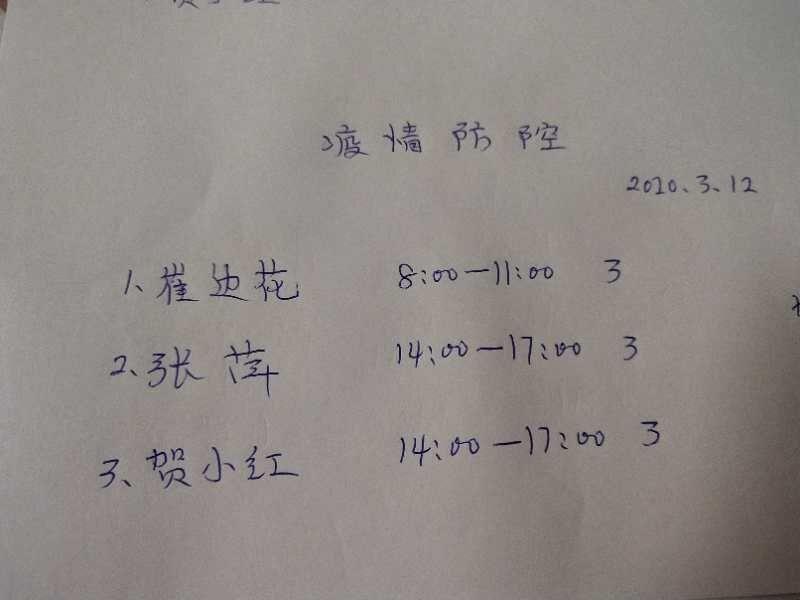 疫情防控
2020.3.12
1、崔边花 8:00—11:00 3
2、张萍 14:00—17:00 3
3、贺小红 14:00—17:00 3